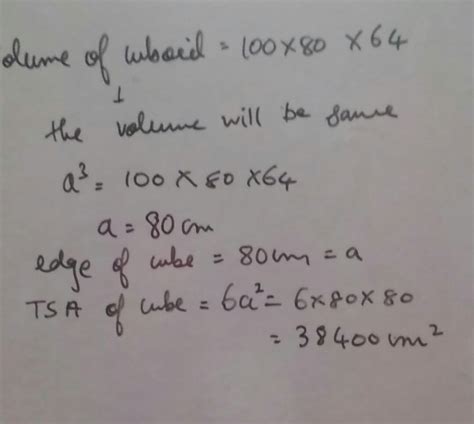 olume of cuboid = 100×80 ×64
↓
the volume will be same
a³ = 100 × 80 ×64
a = 80 cm
edge of cube = 80cm = a
TSA of cube = 6a² = 6×80×80
= 38400 cm²